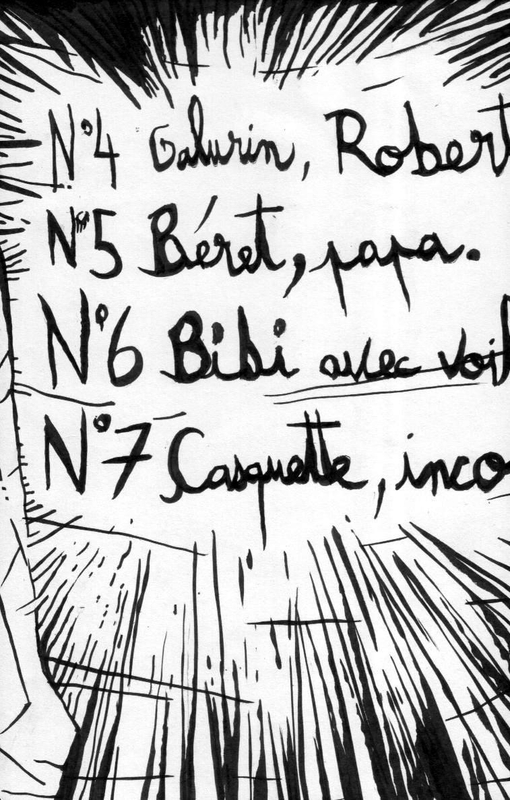 N°4 Galurin, Robert
N°5 Béret, papa.
N°6 Bibi avec voil
N°7 Casquette, inco